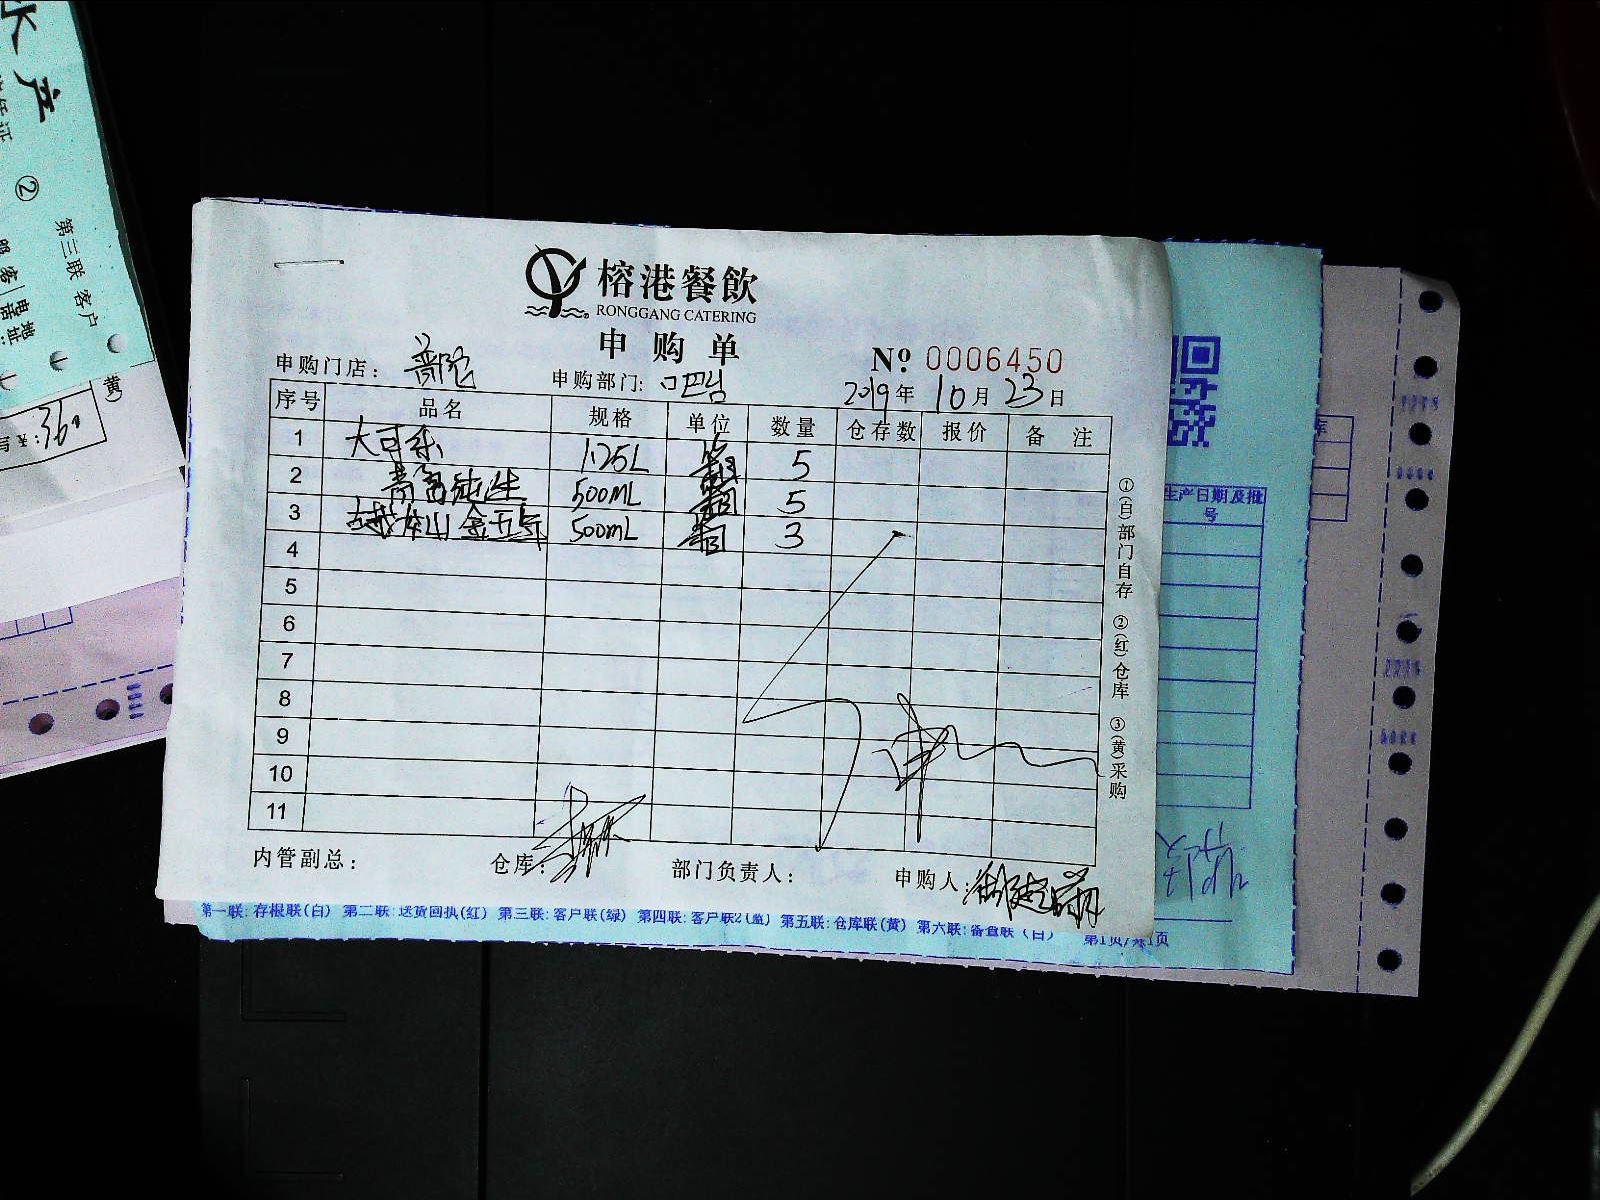 水产
②
第三联 客户
(黄)
360
榕港餐飲
RONGGANG CATERING
申购单
№ 0006450
申购门店: 普陀
申购部门: 吧台
2019年 10月 23日
序号 品名 规格 单位 数量 仓存数 报价 备注
1 大可乐 1.25L 箱 5
2 青岛纯生 500mL 箱 5
3 古越龙山金五年 500mL 箱 3
4
5
6
7
8
9
10
11
内管副总: 仓库: 部门负责人: 申购人:
①(白)部门自存 ②(红)仓库 ③(黄)采购
生产日期及批号
第一联:存根联(白) 第二联:送货回执(红) 第三联:客户联(绿) 第四联:客户联2(蓝) 第五联:仓库联(黄) 第六联:备查联(白) 第1页/共1页